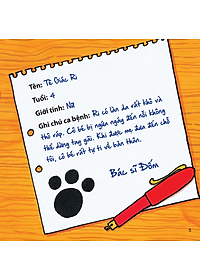 Tên: Tê Giác Ri
Tuổi: 4
Giới tính: Nữ
Ghi chú ca bệnh: Ri có làn da rất khô và
thô ráp. Cô bé bị ngứa ngáy đến nỗi không
thể dừng tay gãi. Khi được mẹ đưa đến chỗ
tôi, cô bé rất tự ti về bản thân.
Bác sĩ Đốm